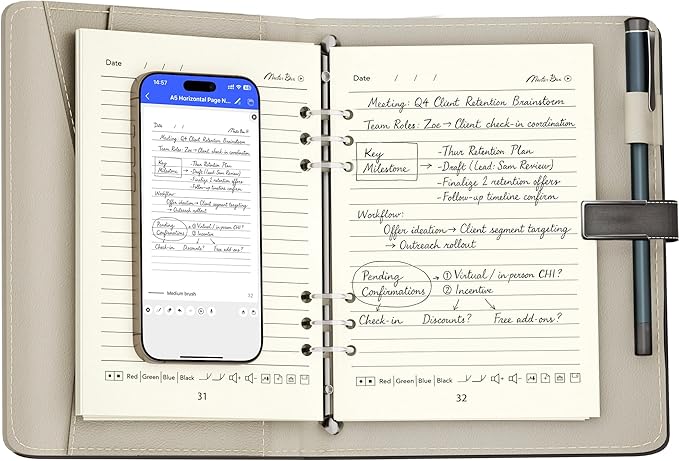 Date / / /
14:57
A5 Horizontal Page N...
Meeting: Q4 Client Retention Brainstorm
Team Roles: Zoe → Client check-in coordination
Key Milestone → -Thur Retention Plan
-Draft (Lead: Sam Review)
-Finalize 2 retention offers
-Follow-up timeline confirm
Workflow:
Offer ideation → Client segment targeting
→ Outreach rollout
Pending Confirmations → ① Virtual / in person CHI?
② Incentive
Check-in Discounts? Free add-ons?
Medium brush 32
Red | Green | Blue | Black
31
Date / / /
Meeting: Q4 Client Retention Brainstorm
Team Roles: Zoe → Client check-in coordination
Key -Thur Retention Plan
Milestone → -Draft (Lead: Sam Review)
-Finalize 2 retention offers
-Follow-up timeline confirm
Workflow:
Offer ideation → Client segment targeting
→ Outreach rollout
Pending → ① Virtual / in person CHI?
Confirmations ② Incentive
Check-in Discounts? Free add-ons?
Red | Green | Blue | Black
32